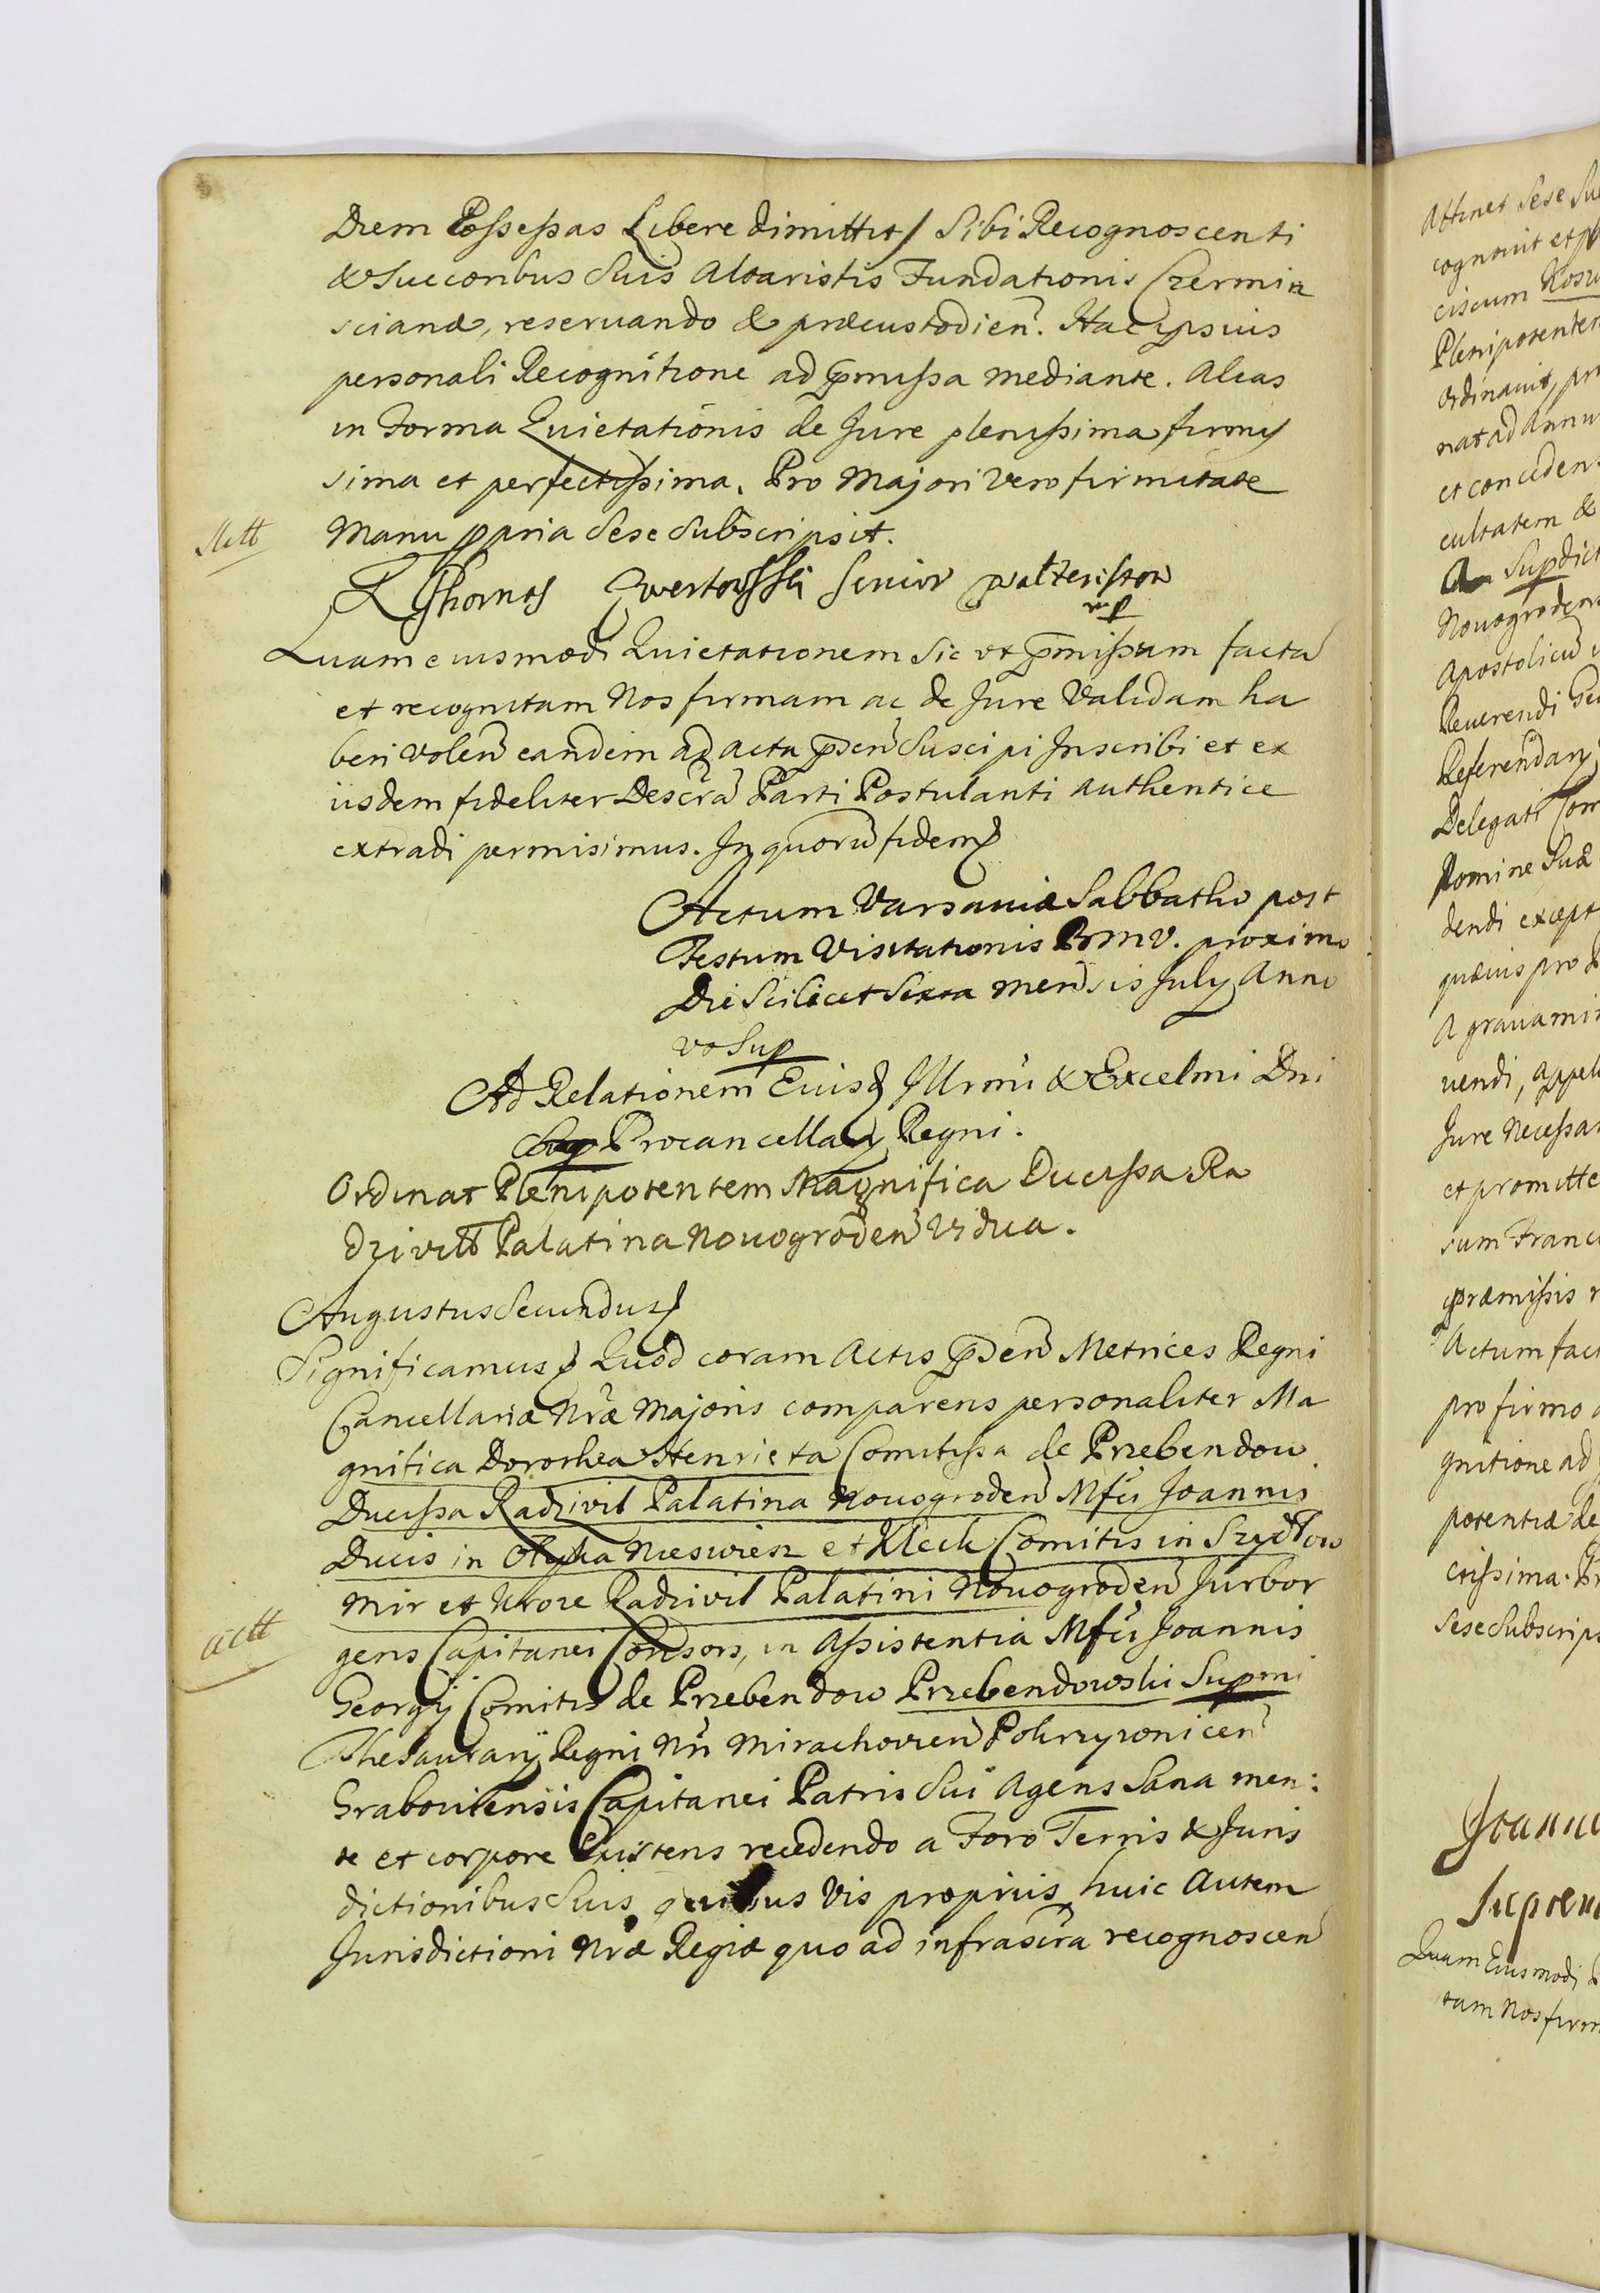 Diem Possessas Libere dimittit Sibi Recognoscenti
& Succoribus Suis Altaristis Fundationis Czermin
scianæ, reservando & præcustodien̄. Hac ipsius
personali Recognitione ad p̄missa mediante. Alias
in Forma Quietationis de Jure plenissima firmis
sima et perfectissima. Pro Majori Vero firmitate
Manu ppria Sese Subscripsit.
Senior
mp
Quam eiusmodi Quietationem Sic vt p̄missum factā
et recognitam Nos firmam ac de Jure Validam ha
beri volen̄ eandem ad Acta p̄sen̄ Suscipi Inscribi et ex
iisdem fideliter Descrā Parti Postulanti Authentice
extradi permisimus. In quorū fidem
Actum Varsaviæ Sabbatho post
Festum Visitationis BMV. proximo
Die Scilicet Sexta Mensis July Anno
vt Sup
Ad Relationem Eiusd Illrmi & Excelmi Dni
Procancellarij Regni.
Ordinat Plenipotentem Magnifica Ducissa Ra
dziviłł Palatina Novogroden̄ Vidua.
Augustus Secundus
Significamus Quod coram Actis p̄sen̄ Metrices Regni
Cancellariæ Nræ Majoris comparens personaliter Ma
gnifica Dorothea Henrieta Comitissa de Przebendow
Ducissa Radzivil Palatina Novogroden̄ Mfci Joannis
Ducis in Olyka Nieswiesz et Kleck Comitis in Szydłow
Mir et Kroze Radzivil Palatini Novogroden̄ Jurbor
gens Capitanei Consors, in Assistentia Mfci Joannis
Georgij Comitis de Przebendow Przebendowski Supmi
Thesaurarij Regni Nri Mirachovien̄ Pokrzywnicen̄
Grabovitensis Capitanei Patris Sui Agens Sana men:
te et corpore Existens recedendo a Foro Terris & Juris
dictionibus Suis quibus Vis propriis huic Autem
Jurisdictioni Nræ Regiæ quo ad infrascra recognoscen̄
Attinet Sese
cognovit et
ciscum
Ordinavit,
nat ad
et conceden
cultatem &
Apostolicū
Reverendi
Referendarij
Delegati
Nomine Suæ
dendi except
quævis pro
A gravami
vendi, appell
Jure Necessa
et promitte
sum Franci
præmissis
Actum fact
pro firmo
gnitione ad
potentiæ de
cissima. Pr
Sese Subscrips
Quam Eiusmodi
tam Nos firm